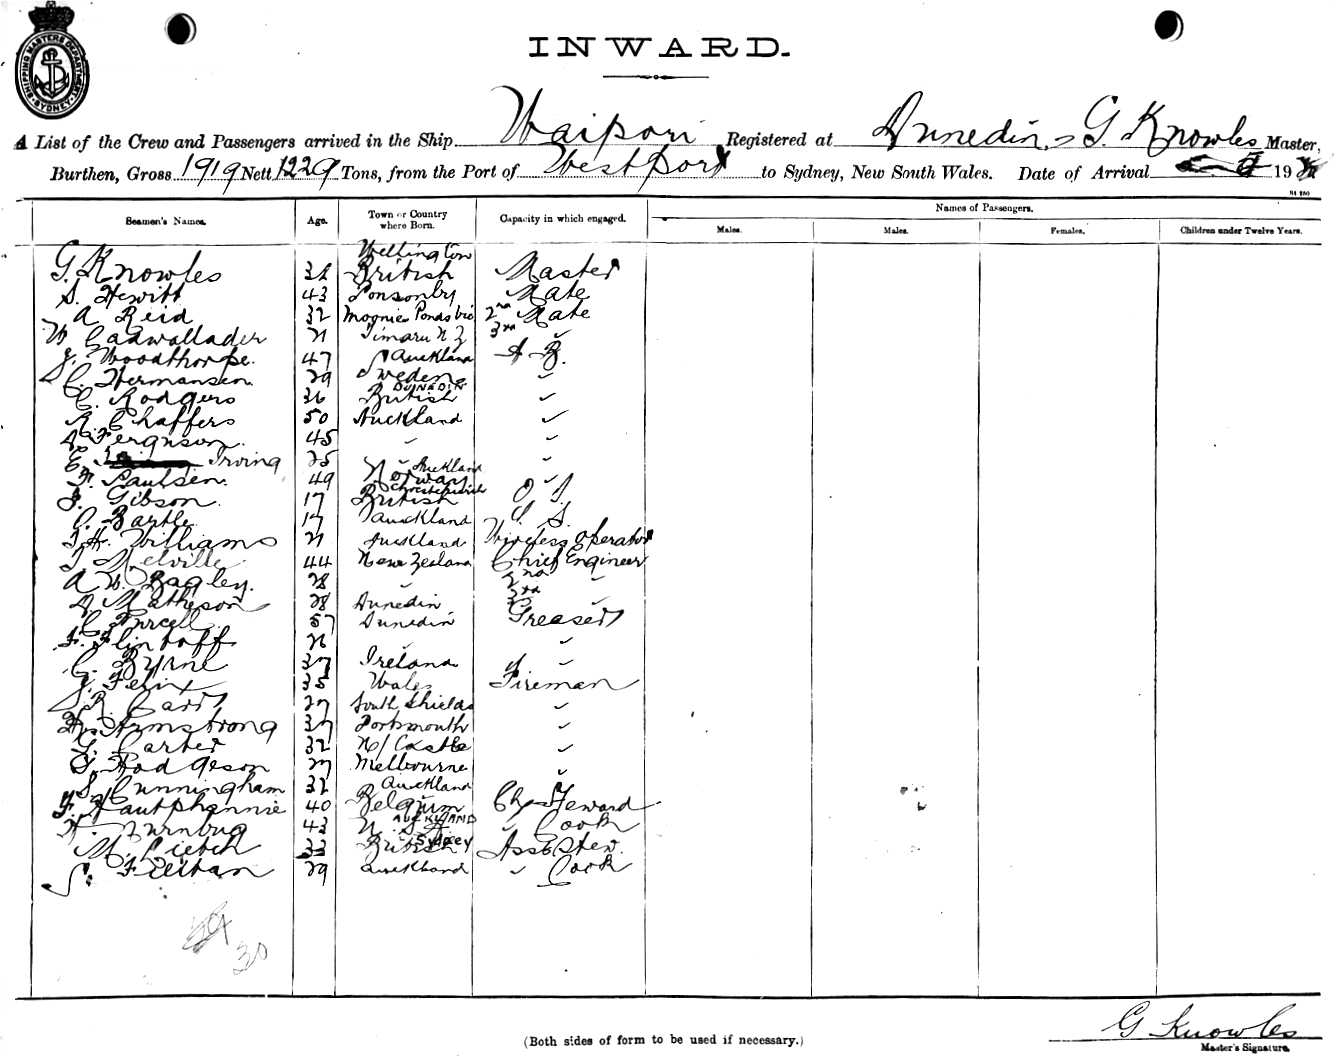 SHIPPING MASTERS DEPARTMENT SYDNEY
INWARD.
A List of the Crew and Passengers arrived in the Ship Waipori Registered at Dunedin, G. Knowles Master,
Burthen, Gross 1919 Nett 1229 Tons, from the Port of Westport to Sydney, New South Wales. Date of Arrival 19
Seamen's Names. Age. Town or Country where Born. Capacity in which engaged. Names of Passengers.
Males. Males. Females. Children under Twelve Years.
Wellington
G. Knowles British Master
S. Hewitt 43 Ponsonby Mate
A Reid 32 Moonie Ponds Vic 2nd Mate
W Cadwallader 21 Timaru N Z 3rd ✓
J. Woodthorpe. 47 Auckland A B.
C. Hermansen. 29 Sweden ✓
DUNEDIN
C. Rodgers 36 British ✓
R. Chaffers 50 Auckland ✓
A Ferguson. 45 ✓ ✓
E. Irving 25 ✓ Auckland ✓
F. Paulsen. 49 Norway ✓
Christchurch
J. Gibson. 17 British O S.
O. Bartle 17 Auckland O. S.
T. H. Williams 21 Auckland Wireless Operator
T Melville 44 New Zealand Chief Engineer
A W. Bagley. 28 ✓ 2nd ✓
A Matheson 28 Dunedin 3rd ✓
C Purcell 57 Dunedin Greaser
F. Flintoff 26 ✓ ✓
C. Byrne 37 Ireland ✓
J. Felix 35 Wales Fireman
J R. Carr 27 South Shields ✓
Armstrong 37 Portsmouth ✓
Carter 32 N/Castle ✓
Hodgeson 27 Melbourne ✓
S. Cunningham 32 Auckland
F. 40 Belguim Steward
AUCKLAND
H. 43 U. S. A ✓ Cook
SYDNEY
M. 33 British Asst Stew.
S. 29 Auckland ✓ Cook
30
G Knowles
(Both sides of form to be used if necessary.)
Master's Signature.